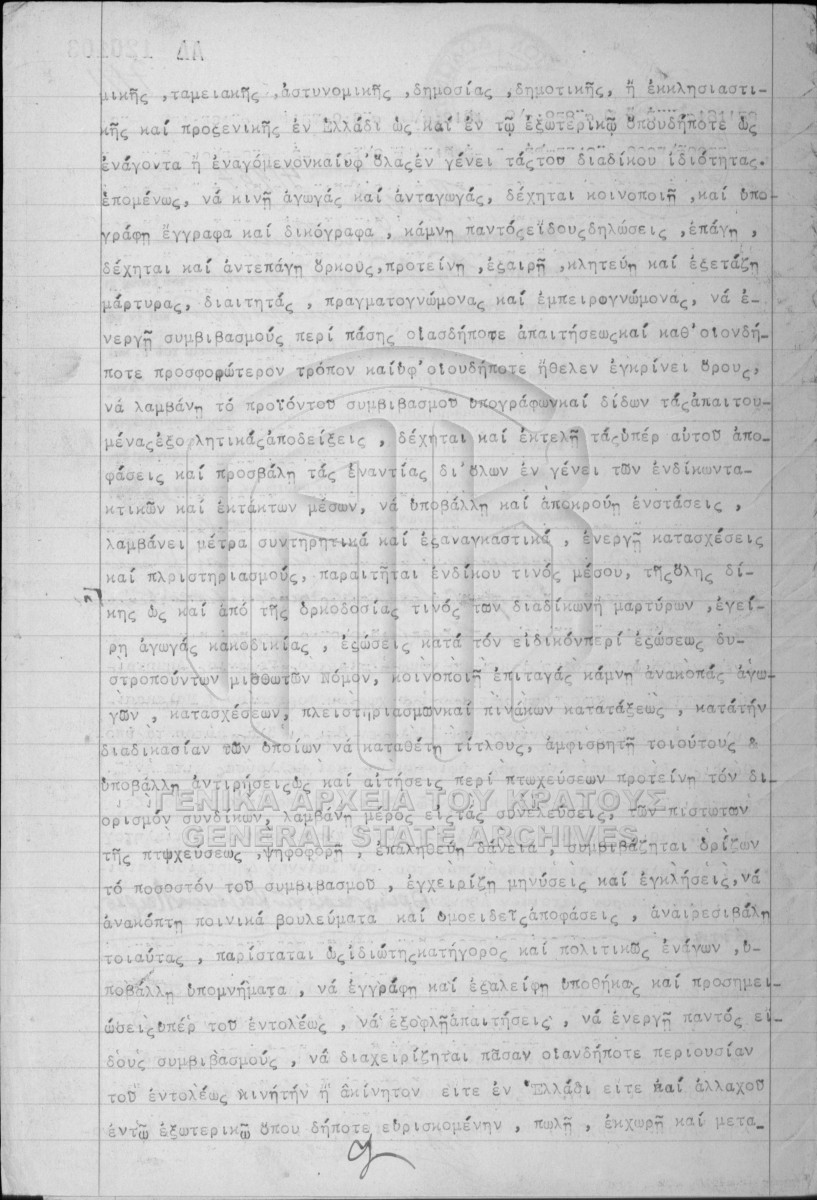 μικῆς ,ταμειακῆς ,ἀστυνομικῆς ,δημοσίας ,δημοτικῆς, ἤ ἐκκλησιαστι-
κῆς καί προξενικῆς ἐν Ἑλλάδι ὡς καί ἐν τῷ ἐξωτερικῷ ὁπουδήποτε ὡς
ἐνάγοντα ἤ ἐναγόμενονκαίυφ'ὅλαςἐν γένει τάςτοῦ διαδίκου ἰδιότητας.
ἑπομένως, νά κινῇ ἀγωγάς καί ἀνταγωγάς, δέχηται κοινοποιῇ ,καί ὑπο-
γράφῃ ἔγγραφα καί δικόγραφα , κάμνῃ παντόςεἴδουςδηλώσεις ,ἐπάγῃ ,
δέχηται καί ἀντεπάγῃ ὅρκους,προτείνῃ ,ἐξαιρῇ ,κλητεύῃ καί ἐξετάζῃ
μάρτυρας, διαιτητάς , πραγματογνώμονας καί ἐμπειρογνώμονας, νά ἐ-
νεργῇ συμβιβασμούς περί πάσης οἱασδήποτε ἀπαιτήσεωςκαί καθ'οἱονδή-
ποτε προσφορώτερον τρόπον καίυφ'οἱουδήποτε ἤθελεν ἐγκρίνει ὅρους,
νά λαμβάνῃ τό προϊόντοῦ συμβιβασμοῦ ὑπογράφωνκαί δίδων τάςἀπαιτου-
μέναςἐξο λητικάςἀποδείξεις , δέχηται καί ἐκτελῇ τάςὑπέρ αὐτοῦ ἀπο-
φάσεις καί προσβάλῃ τάς ἐναντίας δι'ὅλων ἐν γένει τῶν ἐνδίκωντα-
κτικῶν καί ἐκτάκτων μέσων, νά ὑποβάλλῃ καί ἀποκρούῃ ἐνστάσεις ,
λαμβάνει μέτρα συντηρητικά καί ἐξαναγκαστικά , ἐνεργῇ κατασχέσεις
καί πλριστηριασμούς, παραιτῆται ἐνδίκου τινός μέσου, τῆςὅλης δί-
κης ὡς καί ἀπό τῆς ὁρκοδοσίας τινός τῶν διαδίκωνἤ μαρτύρων ,ἐγεί-
ρῃ ἀγωγάς κακοδικίας , ἐξώσεις κατά τόν εἰδικόνπερί ἐξώσεως δυ-
στροπούντων μισθωτῶν Νόμον, κοινοποιῇ ἐπιταγάς κάμνῃ ἀνακοπάς ἀγω-
γῶν , κατασχέσεων, πλειστηριασμῶνκαί πινάκων κατατάξεως , κατάτήν
διαδικασίαν τῶν ὁποίων νά καταθέτῃ τίτλους, ἀμφισβητῇ τοιούτους &
ὑποβάλλῃ ἀντιρήσειςὡς καί αἰτήσεις περί πτωχεύσεων προτείνῃ τόν δι-
ορισμόν συνδίκων, λαμβάνῃ μέρος εἰςτάς συνελεύσεις, τῶν πιστωτῶν
τῆς πτωχεύσεως ,ψηφοφορῇ , ἐπαληθεύῃ δάνεια , συμβιβάζηται ὁρίζων
τό ποσοστόν τοῦ συμβιβασμοῦ , ἐγχειρίζῃ μηνύσεις καί ἐγκλήσεις,νά
ἀνακόπτῃ ποινικά βουλεύματα καί ὁμοειδεῖςἀποφάσεις , ἀναιρεσιβάλῃ
τοιαύτας , παρίσταται ὡςἰδιώτηςκατήγορος καί πολιτικῶς ἐνάγων ,ὑ-
ποβάλλῃ ὑπομνήματα , νά ἐγγράφῃ καί ἐξαλείφῃ ὑποθήκας καί προσημει-
ώσειςὑπέρ τοῦ ἐντολέως , νά ἐξοφλῇἀπαιτήσεις , νά ἐνεργῇ παντός εἴ-
δους συμβιβασμούς , νά διαχειρίζηται πᾶσαν οἱανδήποτε περιουσίαν
τοῦ ἐντολέως κινητήν ἤ ἀκίνητον εἴτε ἐν Ἑλλάδι εἴτε καί ἀλλαχοῦ
ἐντῷ ἐξωτερικῷ ὅπου δήποτε εὑρισκομένην , πωλῇ , ἐκχωρῇ καί μετα-
ΓΕΝΙΚΑ ΑΡΧΕΙΑ ΤΟΥ ΚΡΑΤΟΥΣ
GENERAL STATE ARCHIVES